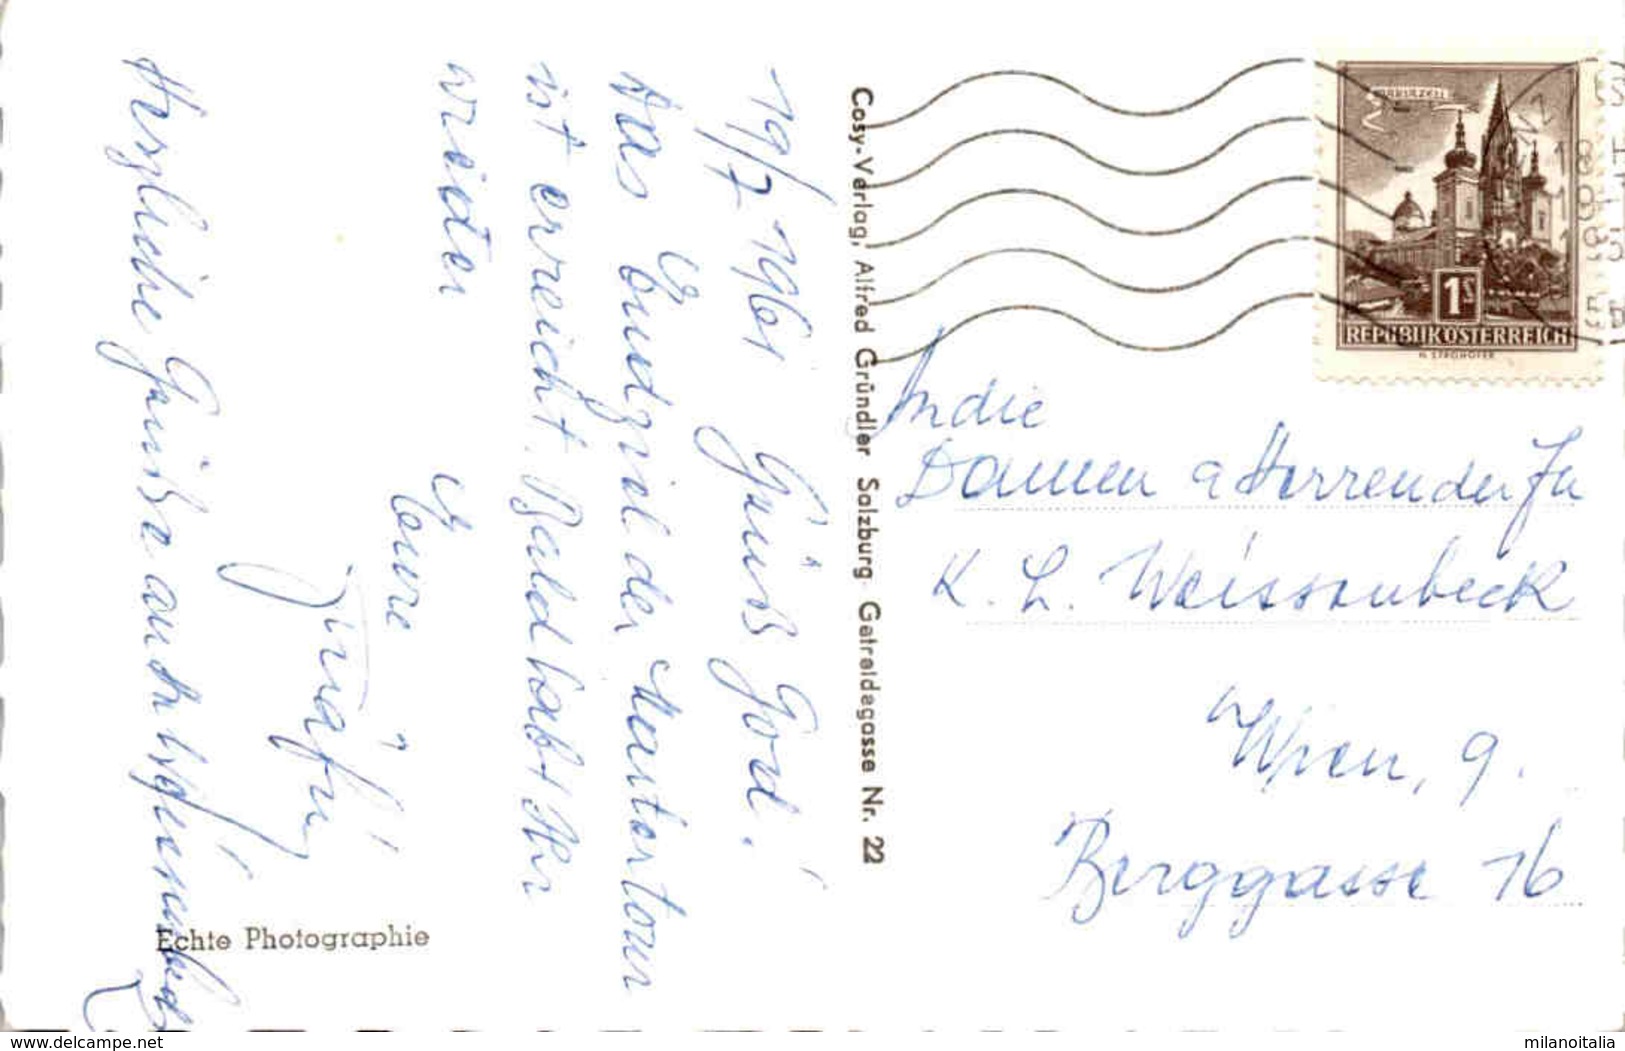 19/7 1961 Grüß Gott!
Das Endziel der Martertour
ist erreicht. Bald habt Ihr
wieder
Eure
Herzliche Grüße auch
Echte Photographie
Cosy-Verlag, Alfred Gründler Salzburg Getreidegasse Nr. 22
MARIAZELL
1S
REPUBLIK ÖSTERREICH
An die
Damen u Herren der Fa
K. L. Weissenbeck
Wien, 9.
Berggasse 16
delcampe.net
milanoitalia